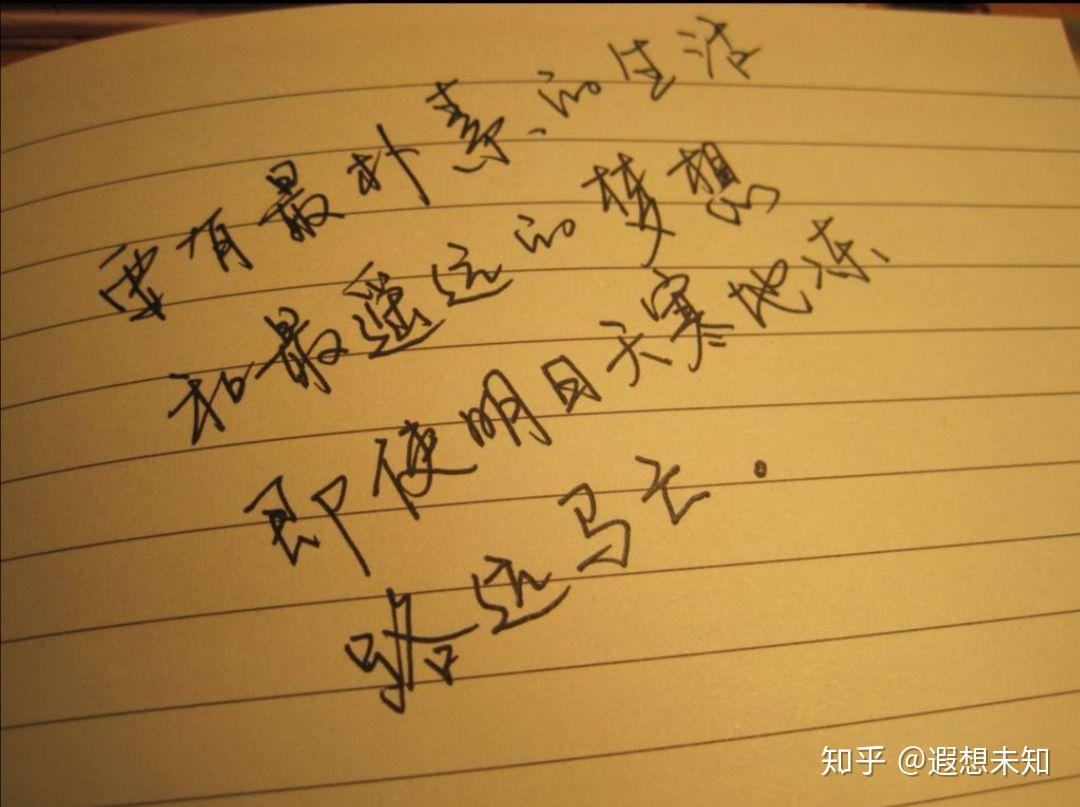 要有最朴素的生活
和最遥远的梦想
即使明日天寒地冻
路远马亡。
知乎 @遐想未知